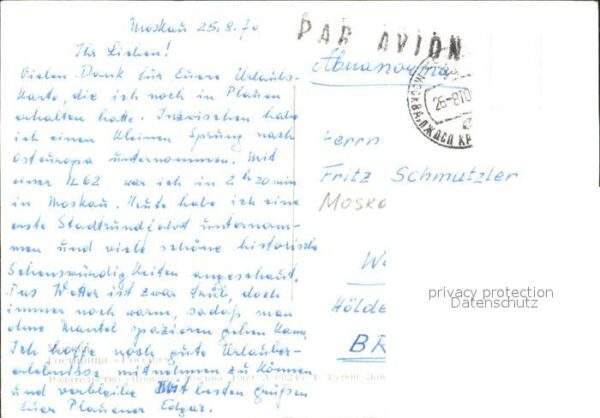 Moskau 25.8.70
Ihr Lieben!
Vielen Dank für Euere Urlaubs-
karte, die ich noch in Plauen
erhalten hatte. Inzwischen habe
ich einen kleinen Sprung nach
Osteuropa unternommen. Mit
einer IL 62 war ich in 2 h 20 min
in Moskau. Heute habe ich eine
erste Stadtrundfahrt unternom-
men und viele schöne historische
Sehenswürdigkeiten angeschaut.
Das Wetter ist zwar trüb, doch
immer noch warm, sodaß man
ohne Mantel spazieren gehen kann.
Ich hoffe noch gute Urlauber-
erlebnisse mitnehmen zu können
und verbleibe mit besten Grüßen
Euer Plauener Edgar.
PAR AVION
МОСКВА
26-870
Herrn
Fritz Schmutzler
MOSKA
W
Hölde
BR
privacy protection
Datenschutz